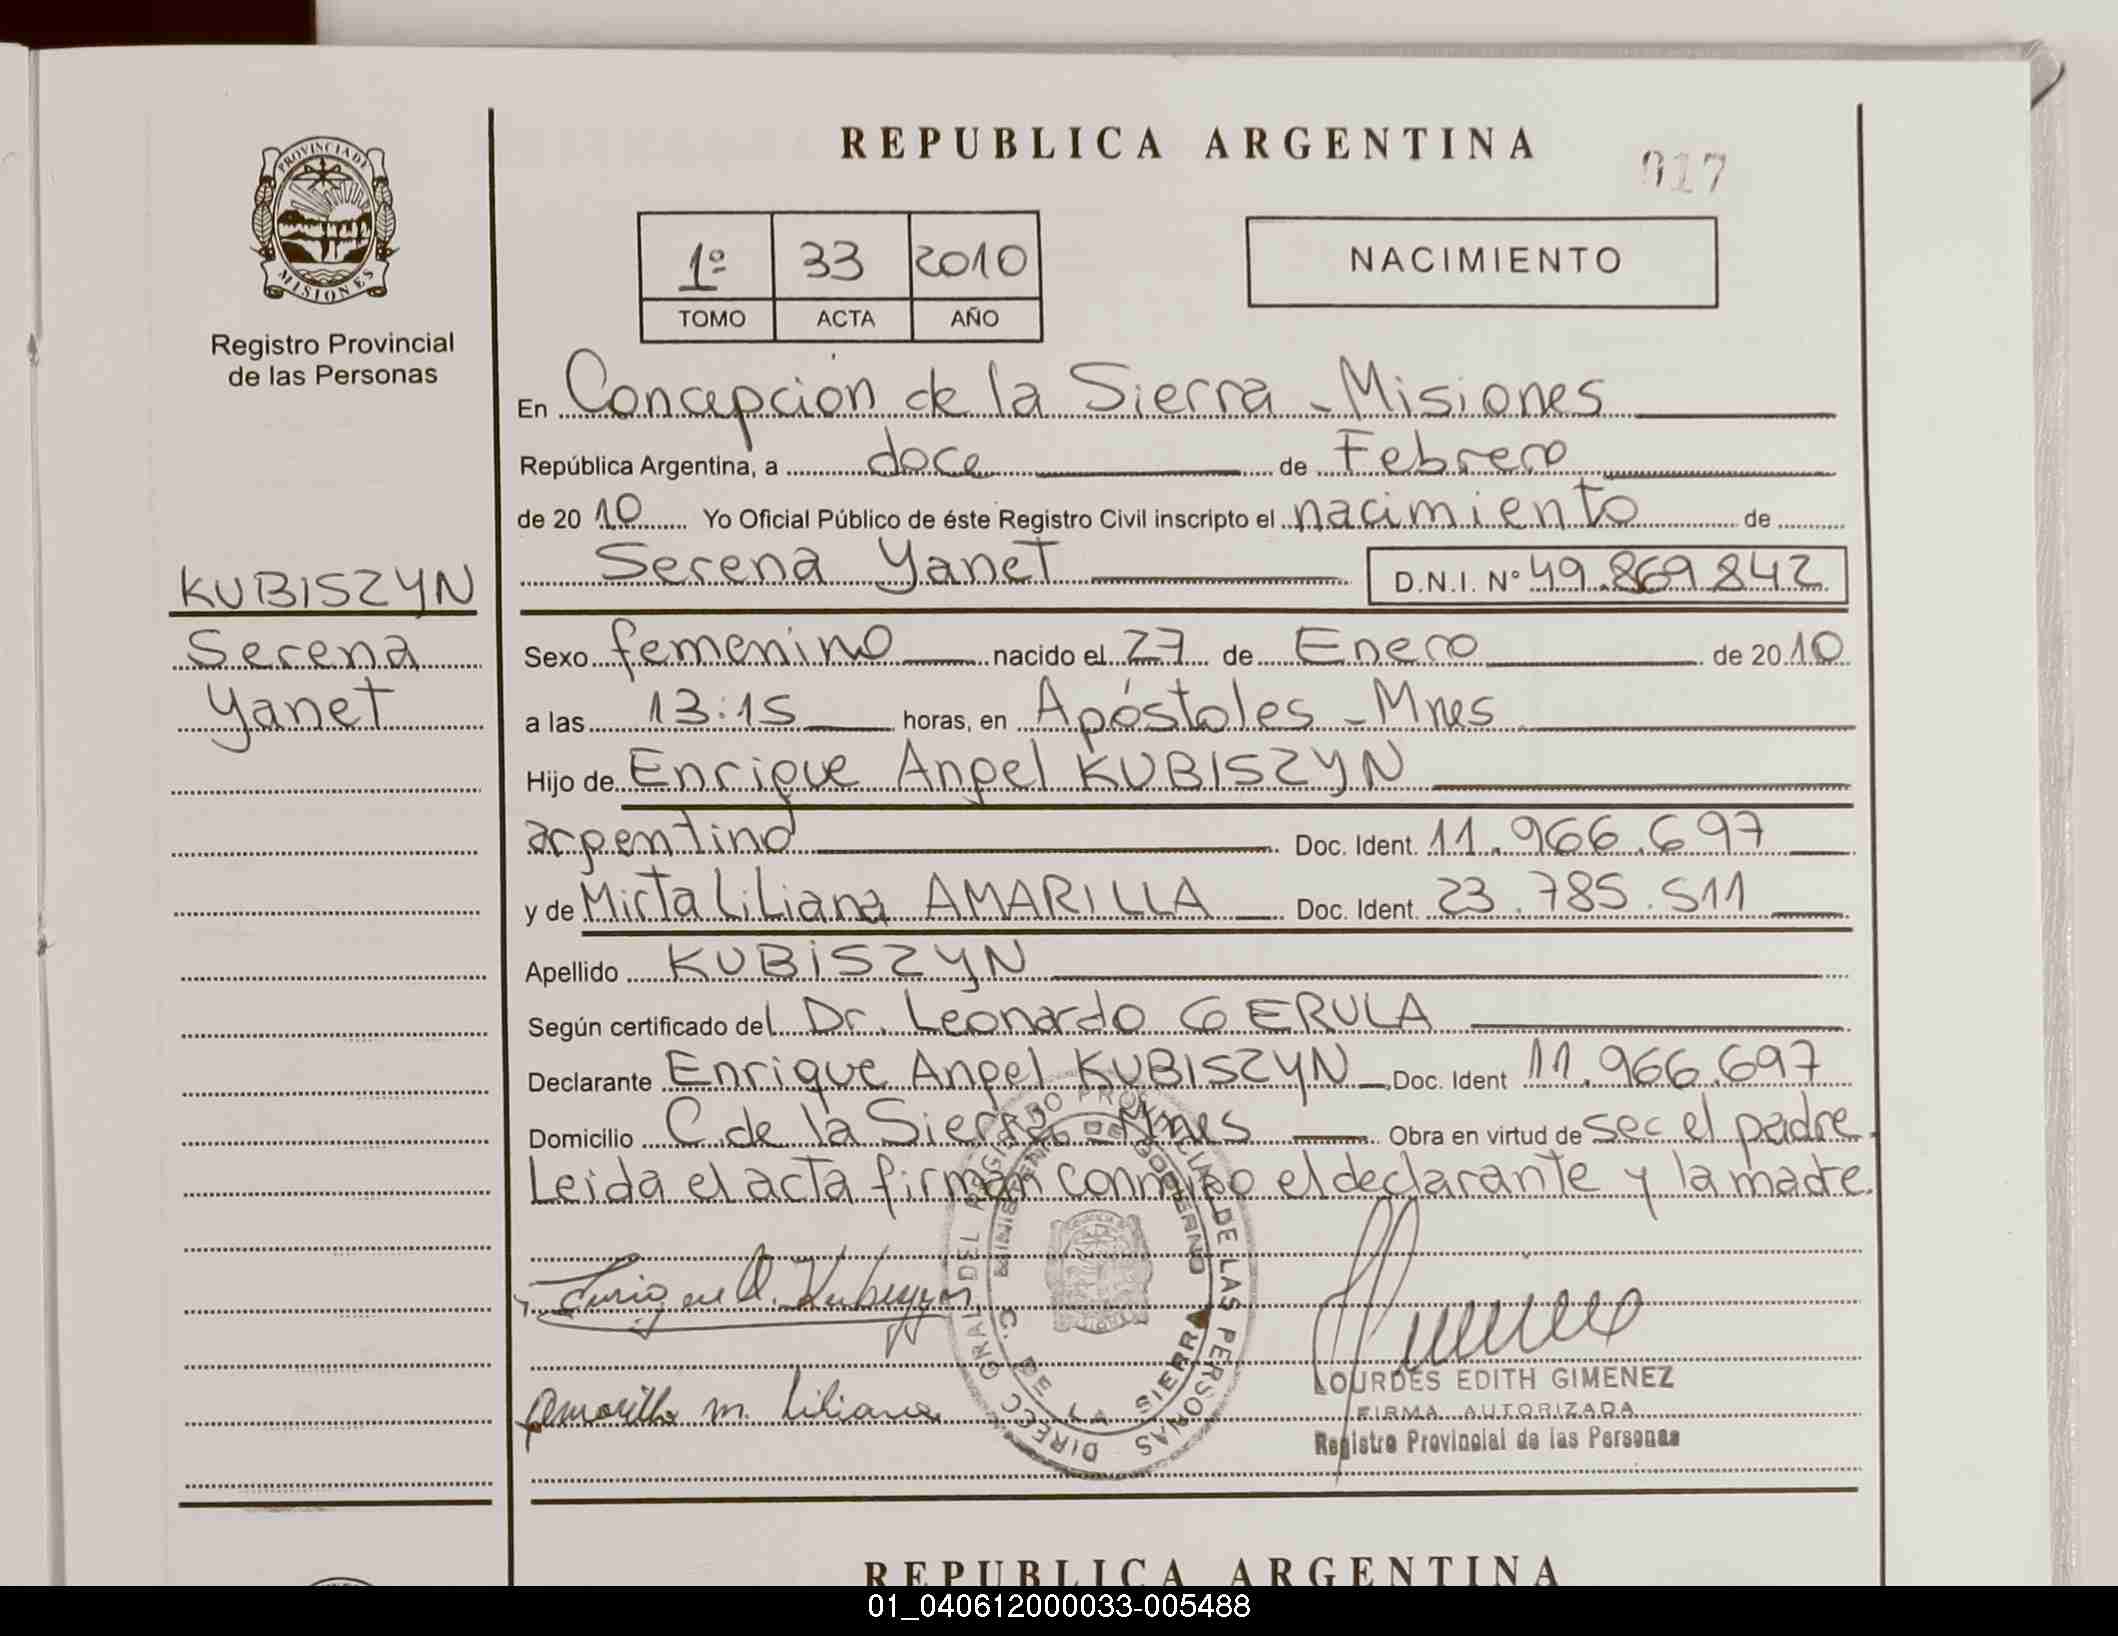 REPUBLICA ARGENTINA
017
PROVINCIA DE
MISIONES
Registro Provincial
de las Personas
1º 33 2010
TOMO ACTA AÑO
NACIMIENTO
En Concepción de la Sierra - Misiones
República Argentina, a doce de Febrero
de 20 10 Yo Oficial Público de éste Registro Civil inscripto el nacimiento de
Serena Yanet D.N.I. Nº 49.869.842
KUBISZYN
Serena
Yanet
Sexo femenino nacido el 27 de Enero de 20 10
a las 13:15 horas, en Apóstoles - Mnes
Hijo de Enrique Angel KUBISZYN
argentino Doc. Ident. 11.966.697
y de Mirta Liliana AMARILLA Doc. Ident. 23.785.511
Apellido KUBISZYN
Según certificado del Dr. Leonardo GERULA
Declarante Enrique Angel KUBISZYN Doc. Ident 11.966.697
Domicilio C. de la Sierra - Mnes Obra en virtud de ser el padre.
Leida el acta firman conmigo el declarante y la madre.
Enrique A. Kubiszyn
Amarilla M. Liliana
DIREC. GRAL. DEL REGISTRO PROVINCIAL DE LAS PERSONAS
MINISTERIO DE GOBIERNO
C. DE LA SIERRA
LOURDES EDITH GIMENEZ
FIRMA AUTORIZADA
Registro Provincial de las Personas
REPUBLICA ARGENTINA
01_040612000033-005488